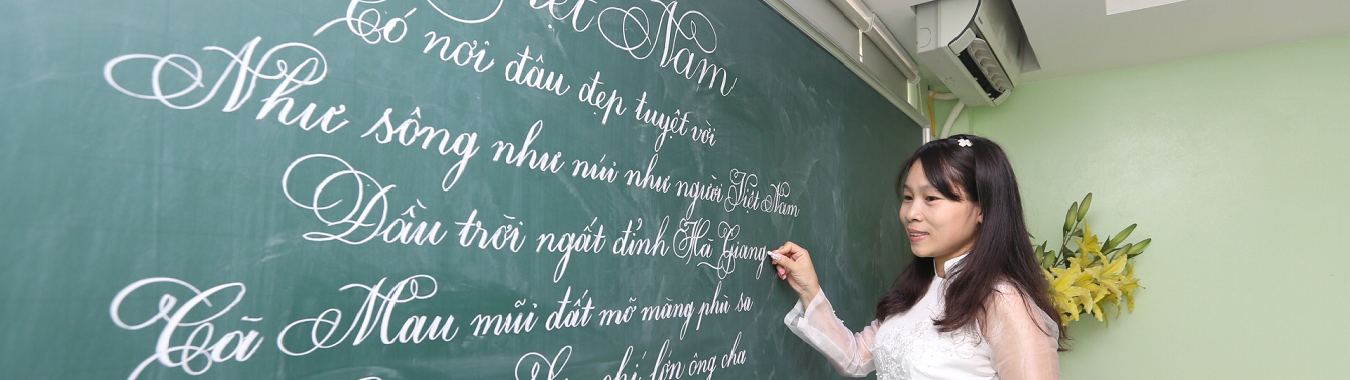 Việt Nam
Có nơi đâu đẹp tuyệt vời
Như sông như núi như người Việt Nam
Đầu trời ngất đỉnh Hà Giang
Cà Mau mũi đất mỡ màng phù sa
chí lớn ông cha